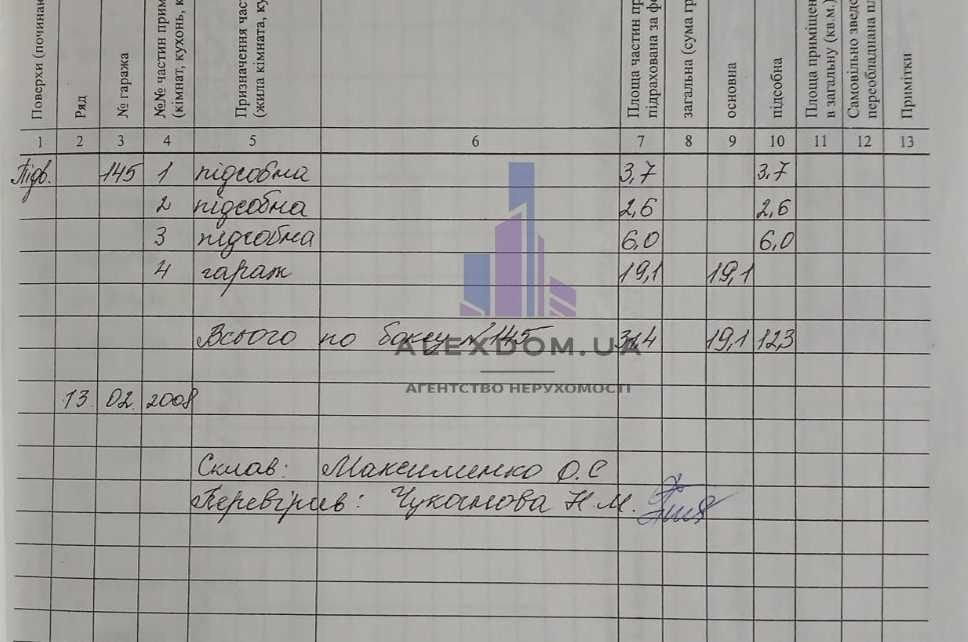 Поверхи (починаю
Ряд
№ гаража
№№ частин прим
(кімнат, кухонь, к
Призначення час
(жила кімната, ку
Площа частин пр
підрахована за фо
загальна (сума гр
основна
підсобна
Площа приміщен
в загальну (кв.м.)
Самовільно зведе
переобладнана пл
Примітки
1 2 3 4 5 6 7 8 9 10 11 12 13
Підв. 145 1 підсобна 3,7 3,7
2 підсобна 2,6 2,6
3 підсобна 6,0 6,0
4 гараж 19,1 19,1
Всього по боксу №145 31,4 19,1 12,3
ALEXDOM.UA
АГЕНТСТВО НЕРУХОМОСТІ
13 02. 2008
Склав: Максименко О.С
Перевірив: Чуканова Н.М.